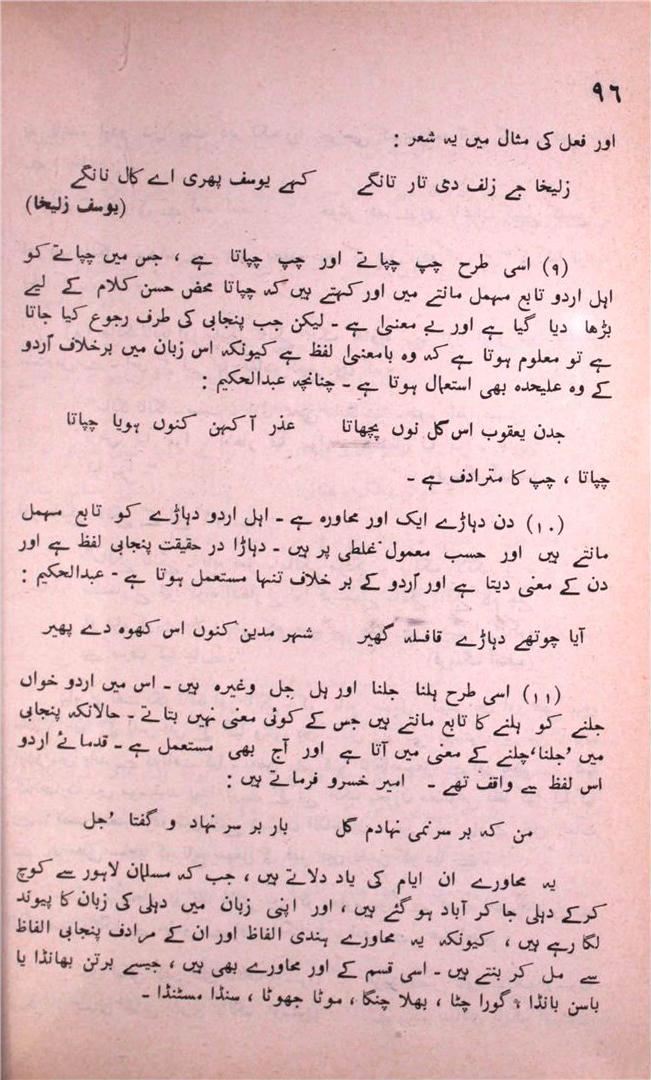 ٩٦
اور فعل کی مثال میں یہ شعر :
زلیخا جے زلف دی تار تانگے کہے یوسف پھری اے کال نانگے
(یوسف زلیخا)
(٩) اسی طرح چپ چپاتے اور چپ چپاتا ہے ، جس میں چپاتے کو
اہل اردو تابع مہمل مانتے میں اور کہتے ہیں کہ چپاتا محض حسن کلام کے لیے
بڑھا دیا گیا ہے اور بے معنیٰ ہے ۔ لیکن جب پنجابی کی طرف رجوع کیا جاتا
ہے تو معلوم ہوتا ہے کہ وہ بامعنیٰ لفظ ہے کیونکہ اس زبان میں برخلاف اُردو
کے وہ علیحدہ بھی استعمال ہوتا ہے ۔ چنانچہ عبدالحکیم :
جدن یعقوب اس گل نوں پچھاتا عذر آ کہن کنوں ہویا چپاتا
چپاتا ، چپ کا مترادف ہے ۔
(١٠) دن دہاڑے ایک اور محاورہ ہے ۔ اہل اردو دہاڑے کو تابع مہمل
مانتے ہیں اور حسب معمول غلطی پر ہیں ۔ دہاڑا در حقیقت پنجابی لفظ ہے اور
دن کے معنی دیتا ہے اور اُردو کے بر خلاف تنہا مستعمل ہوتا ہے ۔ عبدالحکیم :
آیا چوتھے دہاڑے قافلہ گھیر شہر مدین کنوں اس کھوہ دے پھیر
(١١) اسی طرح ہلنا جلنا اور ہل جل وغیرہ ہیں ۔ اس میں اردو خواں
جلنے کو ہلنے کا تابع مانتے ہیں جس کے کوئی معنی نہیں بتاتے ۔ حالانکہ پنجابی
میں ’جلنا‘ چلنے کے معنی میں آتا ہے اور آج بھی مستعمل ہے ۔ قدمائے اردو
اس لفظ سے واقف تھے ۔ امیر خسرو فرماتے ہیں :
من کہ بر سر نمی نہادم گل بار بر سر نہاد و گفتا ’جل
یہ محاورے ان ایام کی یاد دلاتے ہیں ، جب کہ مسلمان لاہور سے کوچ
کرکے دہلی جا کر آباد ہو گئے ہیں ، اور اپنی زبان میں دہلی کی زبان کا پیوند
لگا رہے ہیں ، کیونکہ یہ محاورے ہندی الفاظ اور ان کے مرادف پنجابی الفاظ
سے مل کر بنتے ہیں ۔ اسی قسم کے اور محاورے بھی ہیں ، جیسے برتن بھانڈا یا
باسن بانڈا ، گورا چٹا ، بھلا چنگا ، موٹا جھوٹا ، سنڈا مسٹنڈا ۔